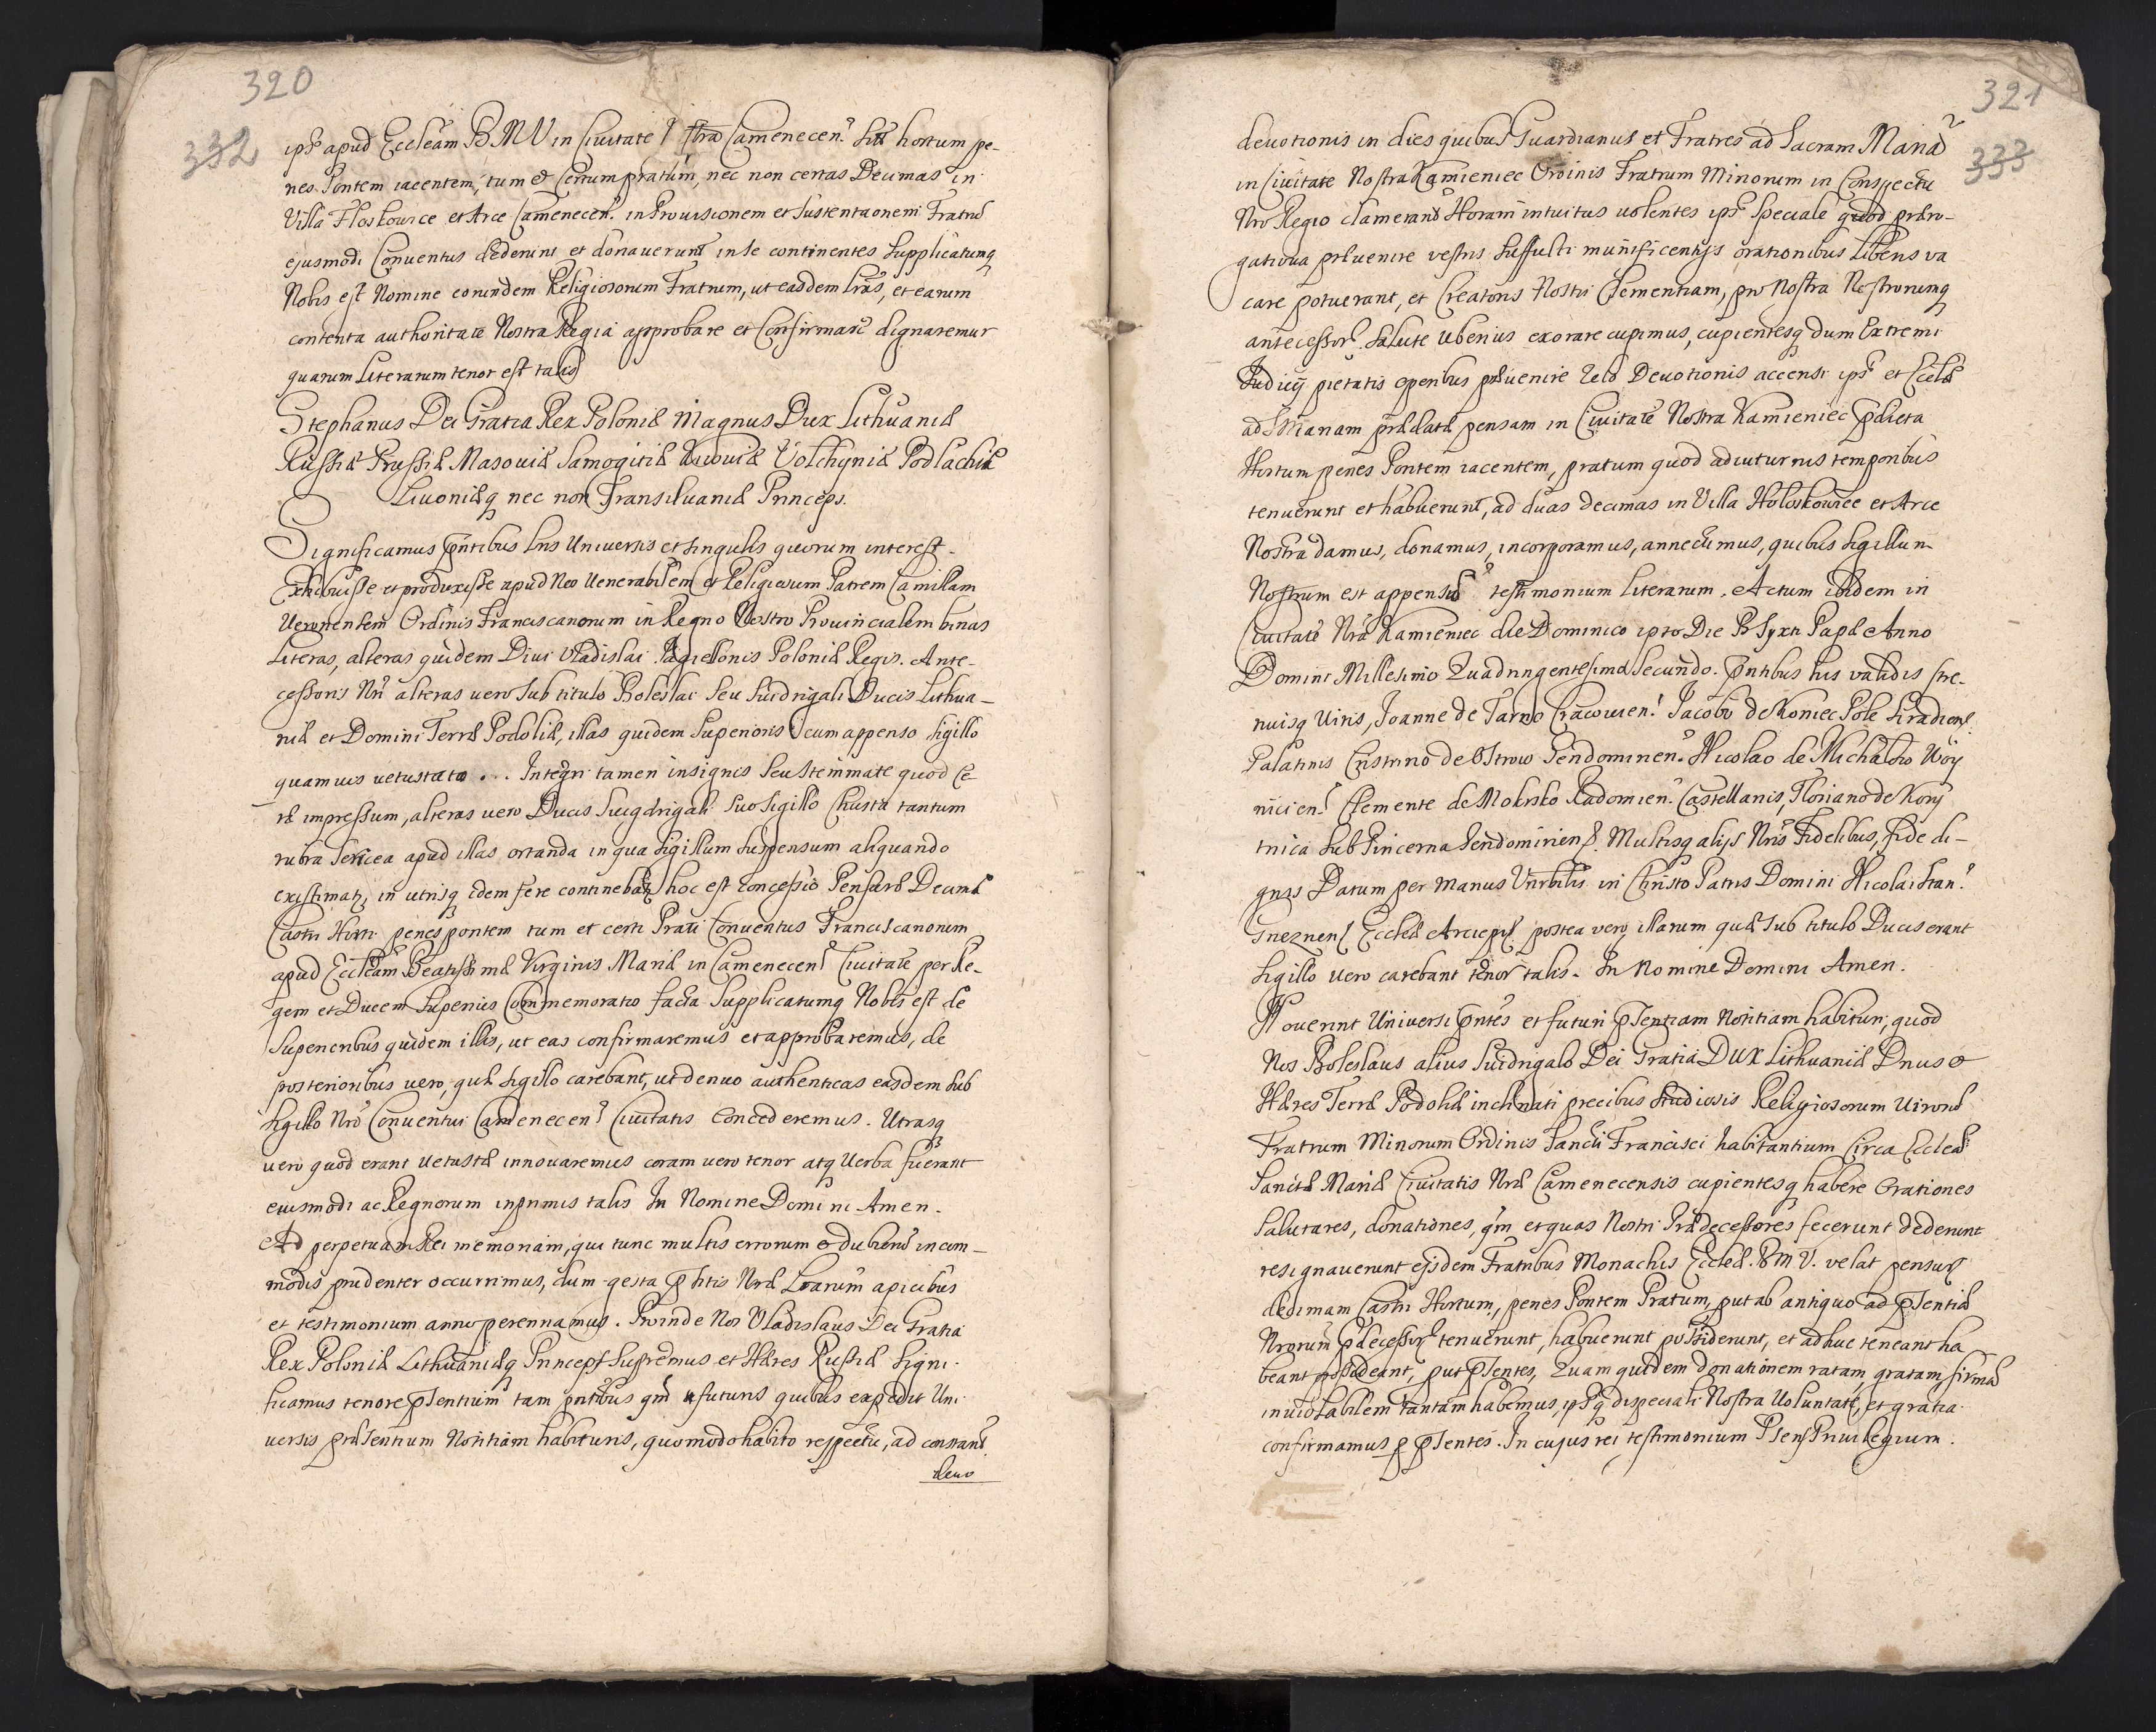 320
332
ipso apud Eccleam B M V in Civitate Nostra Camenecen. siti hortum pe-
nes Pontem iacentem, tum et Certum pratum, nec non certas Decimas in
Villa Floskowce et Arce Camenecen. in Provisionem et Sustentaonem Fratrũ
ejusmodi Conventus dederint et donaverunt in se continentes Supplicatumq
Nobis est Nomine eorundem Religiosorum Fratrum, ut easdem Lrãs, et earum
contenta authoritate Nostra Regia approbare et Confirmare dignaremur
quarum Literarum tenor est talis
Stephanus Dei Gratia Rex Poloniæ Magnus Dux Lithuaniæ
Russiæ Prussiæ Masoviæ Samogitiæ Kiioviæ Volchyniæ Podlachiæ
Livoniæq nec non Transilvaniæ Princeps.
Significamus pñtibus Lris Universis et singulis quorum interest.
Exhibuisse et produxisse apud Nos Venerabilem et Religiosum Patrem Camillam
Veronensem Ordinis Franciscanorum in Regno Nostro Provincialem binas
Literas, alteras quidem Divi Vladislai Jagiellonis Poloniæ Regis. Ante-
cessoris Nri alteras vero Sub titulo Boleslai Seu Suidrigali Ducis Lithua-
niæ et Domini Terræ Podoliæ, illas quidem Superioris cum appenso Sigillo
quamvis vetustato ... Integri tamen insignis Seu Stemmate quod Ce-
ræ impressum, alteras vero Ducis Suigdrigali Suo Sigillo Chusta tantum
rubra Sericea apud illas ortanda in qua Sigillum Suspensum aliquando
existimatz, in utrisq idem fere continebatz hoc est concessio Pensaræ Decimæ
Castri Horti penes pontem tum et certi Prati Conventus Franciscanorum
apud Eccleam Beatissimæ Virginis Mariæ in Camenecens Civitate per Re-
gem et Ducem Superius Commemoratio facta Supplicatumq Nobis est de
Superioribus quidem illis, ut eas confirmaremus et approbaremus, de
posterioribus vero, quæ Sigillo carebant, ut denuo authenticas easdem Sub
Sigillo Nro Conventui Camenecens Civitatis Concederemus. Utrasq
vero quod erant vetustæ innovaremus coram vero tenor atq Verba fuerant
eiusmodi ac Regnorum inprimis talis In Nomine Domini Amen.
Ad perpetuam Rei memoriam, qui tunc multis errorum et dubiorũ incom-
modis prudenter occurrimus, dum gesta p Sitis Nræ Lrarum apicibus
et testimonium anno perennamus. Proinde Nos Vladislaus Dei Gratia
Rex Poloniæ Lithuaniæq Princeps Supremus et Hæres Russiæ Signi-
ficamus tenore pSentium tam pñtibus qm futuris quibus expedit Uni-
versis præSentium Notitiam habituris, quomodo habito respectu, ad constant
devo
321
2
333
devotionis in dies quibus Guardianus et Fratres ad Sacram Mariã
in Civitate Nostra Kamieniec Ordinis Fratrum Minorum in Conspectu
Nro Regio clamerant Horam intuitus volentes ips Speciale quod præro-
gativa prævenire vestris Suffulti munificentijs orationibus Libens va
care potuerant, et Creatoris Nostri Clementiam, pro Nostra Nostrorumq
antecessor Salute Uberius exorare cupimus, cupientesq dum Extremi
Judicij pietatis operibus prævenire Zelo Devotionis accensi ips et Eccles
ad S Mariam prædictæ pensam in Civitate Nostra Kamieniec pdicta
Hortum penes Pontem iacentem, pratum quod adiuturnis temporibus
tenuerunt et habuerunt, ad duas decimas in Villa Holoskowce et Arce
Nostra damus, donamus, incorporamus, annectimus, quibus Sigillum
Nostrum est appensũ testimonium Literarum. Actum ibidem in
Civitate Nrã Kamieniec die Dominico ipso Die B Syxti Papæ Anno
Domini Millesimo Quadringentesimo Secundo. Pñtibus his validis stre-
nuisq Viris, Joanne de Tarno Cracovien. Jacobo de Koniec Pole Siradiens
Palatinis Cristino de Ostrow Sendomirien. Nicolao de Michałow Woy
nicien. Clemente de Mokrsko Radomien. Castellanis, Floriano de Kory
tnica Sub Pincerna Sendomiriens. Multisq alijs Nris Fidelibus, fide di-
gnis Datum per manus Vnrbilis in Christo Patris Domini Nicolai San.
Gneznens Ecclesiæ Arciepis postea vero, illarum quæ Sub titulo Ducis erant
Sigillo vero carebant tenor talis. In Nomine Domini Amen.
Noverint Universi pñtes et futuri pSentiam Notitiam habituri, quod
Nos Boleslaus alius Suidrigalo Dei Gratia Dux Lithuaniæ Dnus et
Hæres Terræ Podoliæ inclinati precibus Studiosis Religiosorum Virorũ
Fratrum Minorum Ordinis Sancti Francisci habitantium Circa Eccleã
Sanctæ Mariæ Civitatis Nræ Camenecensis cupientesq habere Orationes
Salutares, donationes, qm et quas Nostri Prædecessores fecerunt dederunt
resignaverunt ejsdem Fratribus Monachis Ecclesiæ. B M V. velat pensur
decimam Castri Hortum, penes Pontem Pratum, put ab antiquo ad pSentiæ
Nrorum pdecessor tenuerunt, habuerunt possiderunt, et adhuc teneant ha
beant possideant, put pSentes, Quam quidem donationem ratam, gratam, firmã
inviolabilem tantam habemus, ipsq dispeciali Nostra Voluntate, et gratia
confirmamus p pSentes. In cujus rei testimonium PSens Privilegium.